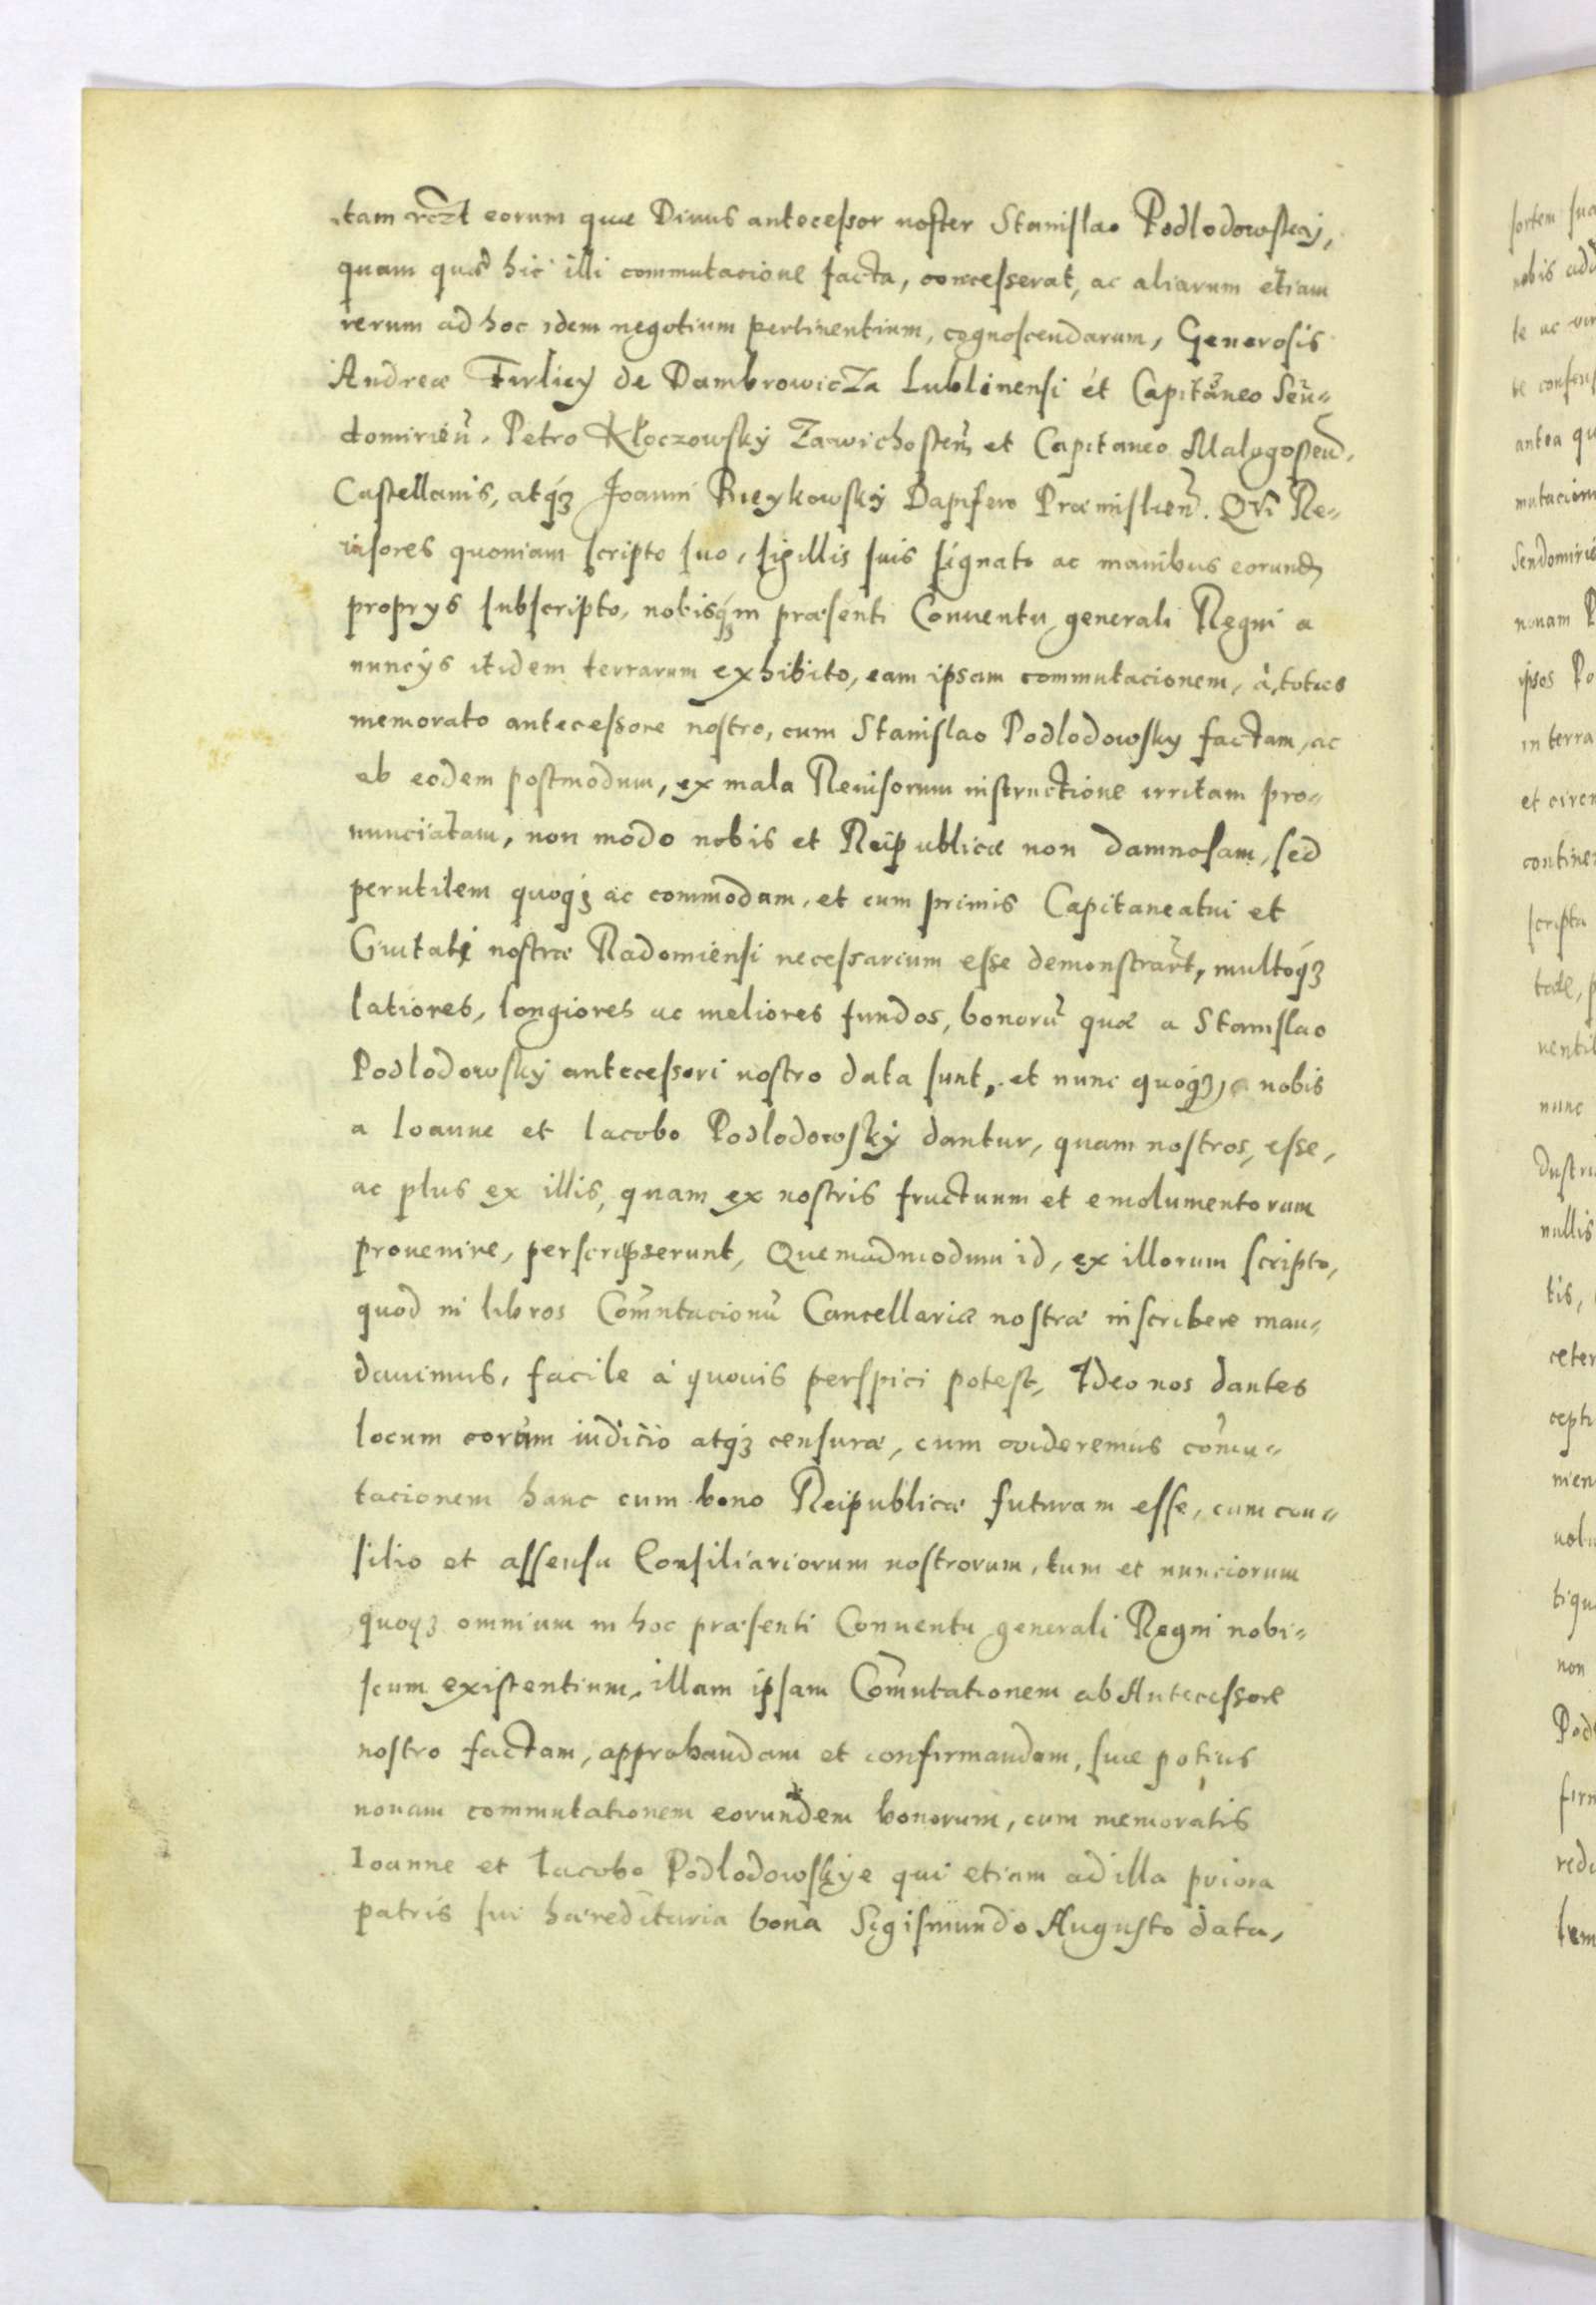 tam eorum quæ Diuus antecessor noster Stanislao Podlodowsky,
quam quæ hic illi commutacione facta, concesserat, ac aliarum etiam
rerum ad hoc idem negotium pertinentium, cognoscendarum, Generosis
Andreæ Firliey de Dambrowicza Lublinensi et Capitaneo Sen=
domirieñ. Petro Kłoczowsky Zawichosteñ et Capitaneo Malogosteñ.
Castellanis, atq3 Joanni Bieykowsky Dapifero Præmislieñ. Qui Re=
uisores quoniam scripto suo, sigillis suis signato ac manibus eorund
proprys subscripto, nobisq3 in præsenti Conuentu generali Regni a
nuncys itidem terrarum exhibito, eam ipsam commutacionem, à toties
memorato antecessore nostro, cum Stanislao Podlodowsky factam, ac
ab eodem postmodum, ex mala Reuisorum instructione irritam pro=
nunciatam, non modo nobis et Reipublicæ non damnosam, sed
perutilem quoq3 ac commodam, et cum primis Capitaneatui et
Ciuitati nostræ Radomiensi necessarium esse demonstrar̃t, multoq3
latiores, longiores ac meliores fundos, bonorũ quæ a Stanislao
Podlodowsky antecessori nostro data sunt, et nunc quoq3, nobis
a Ioanne et Iacobo Podlodowsky dantur, quam nostros, esse,
ac plus ex illis, quam ex nostris fructuum et emolumentorum
prouenire, perscripserunt, Quemadmodum id, ex illorum scripto,
quod in libros Com̃utacionũ Cancellariæ nostræ inscribere man=
dauimus, facile à quouis perspici potest, Ideo nos dantes
locum eorum iudicio atq3 censuræ, cum videremus com̃u=
tacionem hanc cum bono Reipublicæ futuram esse, cum con=
silio et assensu Consiliariorum nostrorum, tum et nunciorum
quoq3 omnium in hoc præsenti Conuentu generali Regni nobi=
scum existentium, illam ipsam Com̃utationem ab Antecessore
nostro factam, approbandam et confirmandam, siue potius
nouam commutationem eorundem bonorum, cum memoratis
Ioanne et Iacobo Podlodowskye qui etiam ad illa priora
patris sui hæreditaria bona Sigismundo Augusto data,